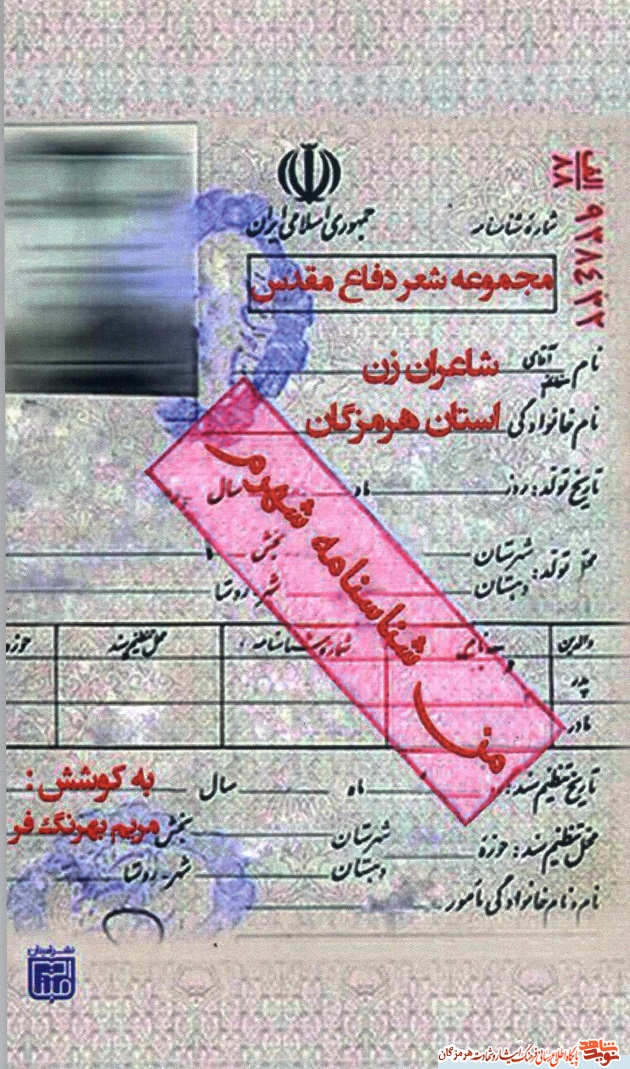 الف
۸۸
۹۳۸٤۲۲
جمهوری اسلامی ایران
شمارهٔ شناسنامه
مجموعه شعر دفاع مقدس
نام آقای شاعران زن
نام خانوادگی استان هرمزگان
تاریخ تولد: روز ماه سال
محل تولد: شهرستان بخش
دهستان شهر - روستا
من شناسنامه شهرم
والدین نام شماره شناسنامه محل تنظیم سند حوزه
پدر
مادر
تاریخ تنظیم سند: ماه سال
به کوشش :
مریم بهرنگ فر
محل تنظیم سند: حوزه شهرستان بخش
دهستان شهر - روستا
نام و نام خانوادگی مأمور
نوید شاهد پایگاه اطلاع رسانی فرهنگ ایثار و شهادت هرمزگان